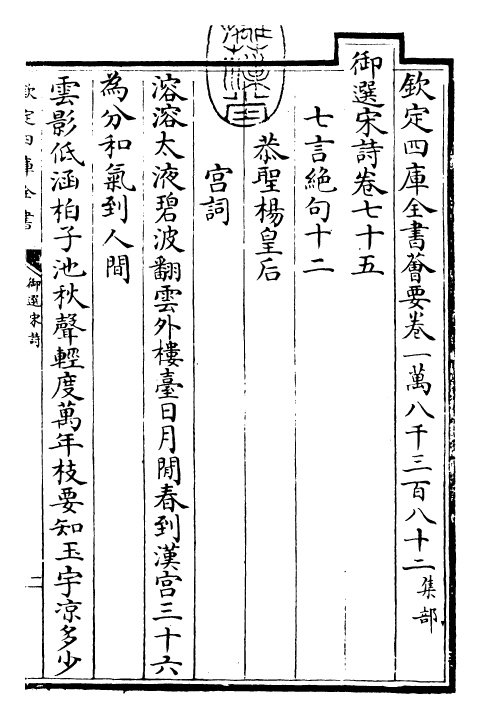 欽定四庫全書薈要卷一萬八千三百八十二集部
御選宋詩卷七十五
七言絶句十二
恭聖楊皇后
宫詞
溶溶太液碧波翻雲外樓臺日月閒春到漢宫三十六
為分和氣到人間
雲影低涵柏子池秋聲輕度萬年枝要知玉宇凉多少
欽定四庫全書
御選宋詩